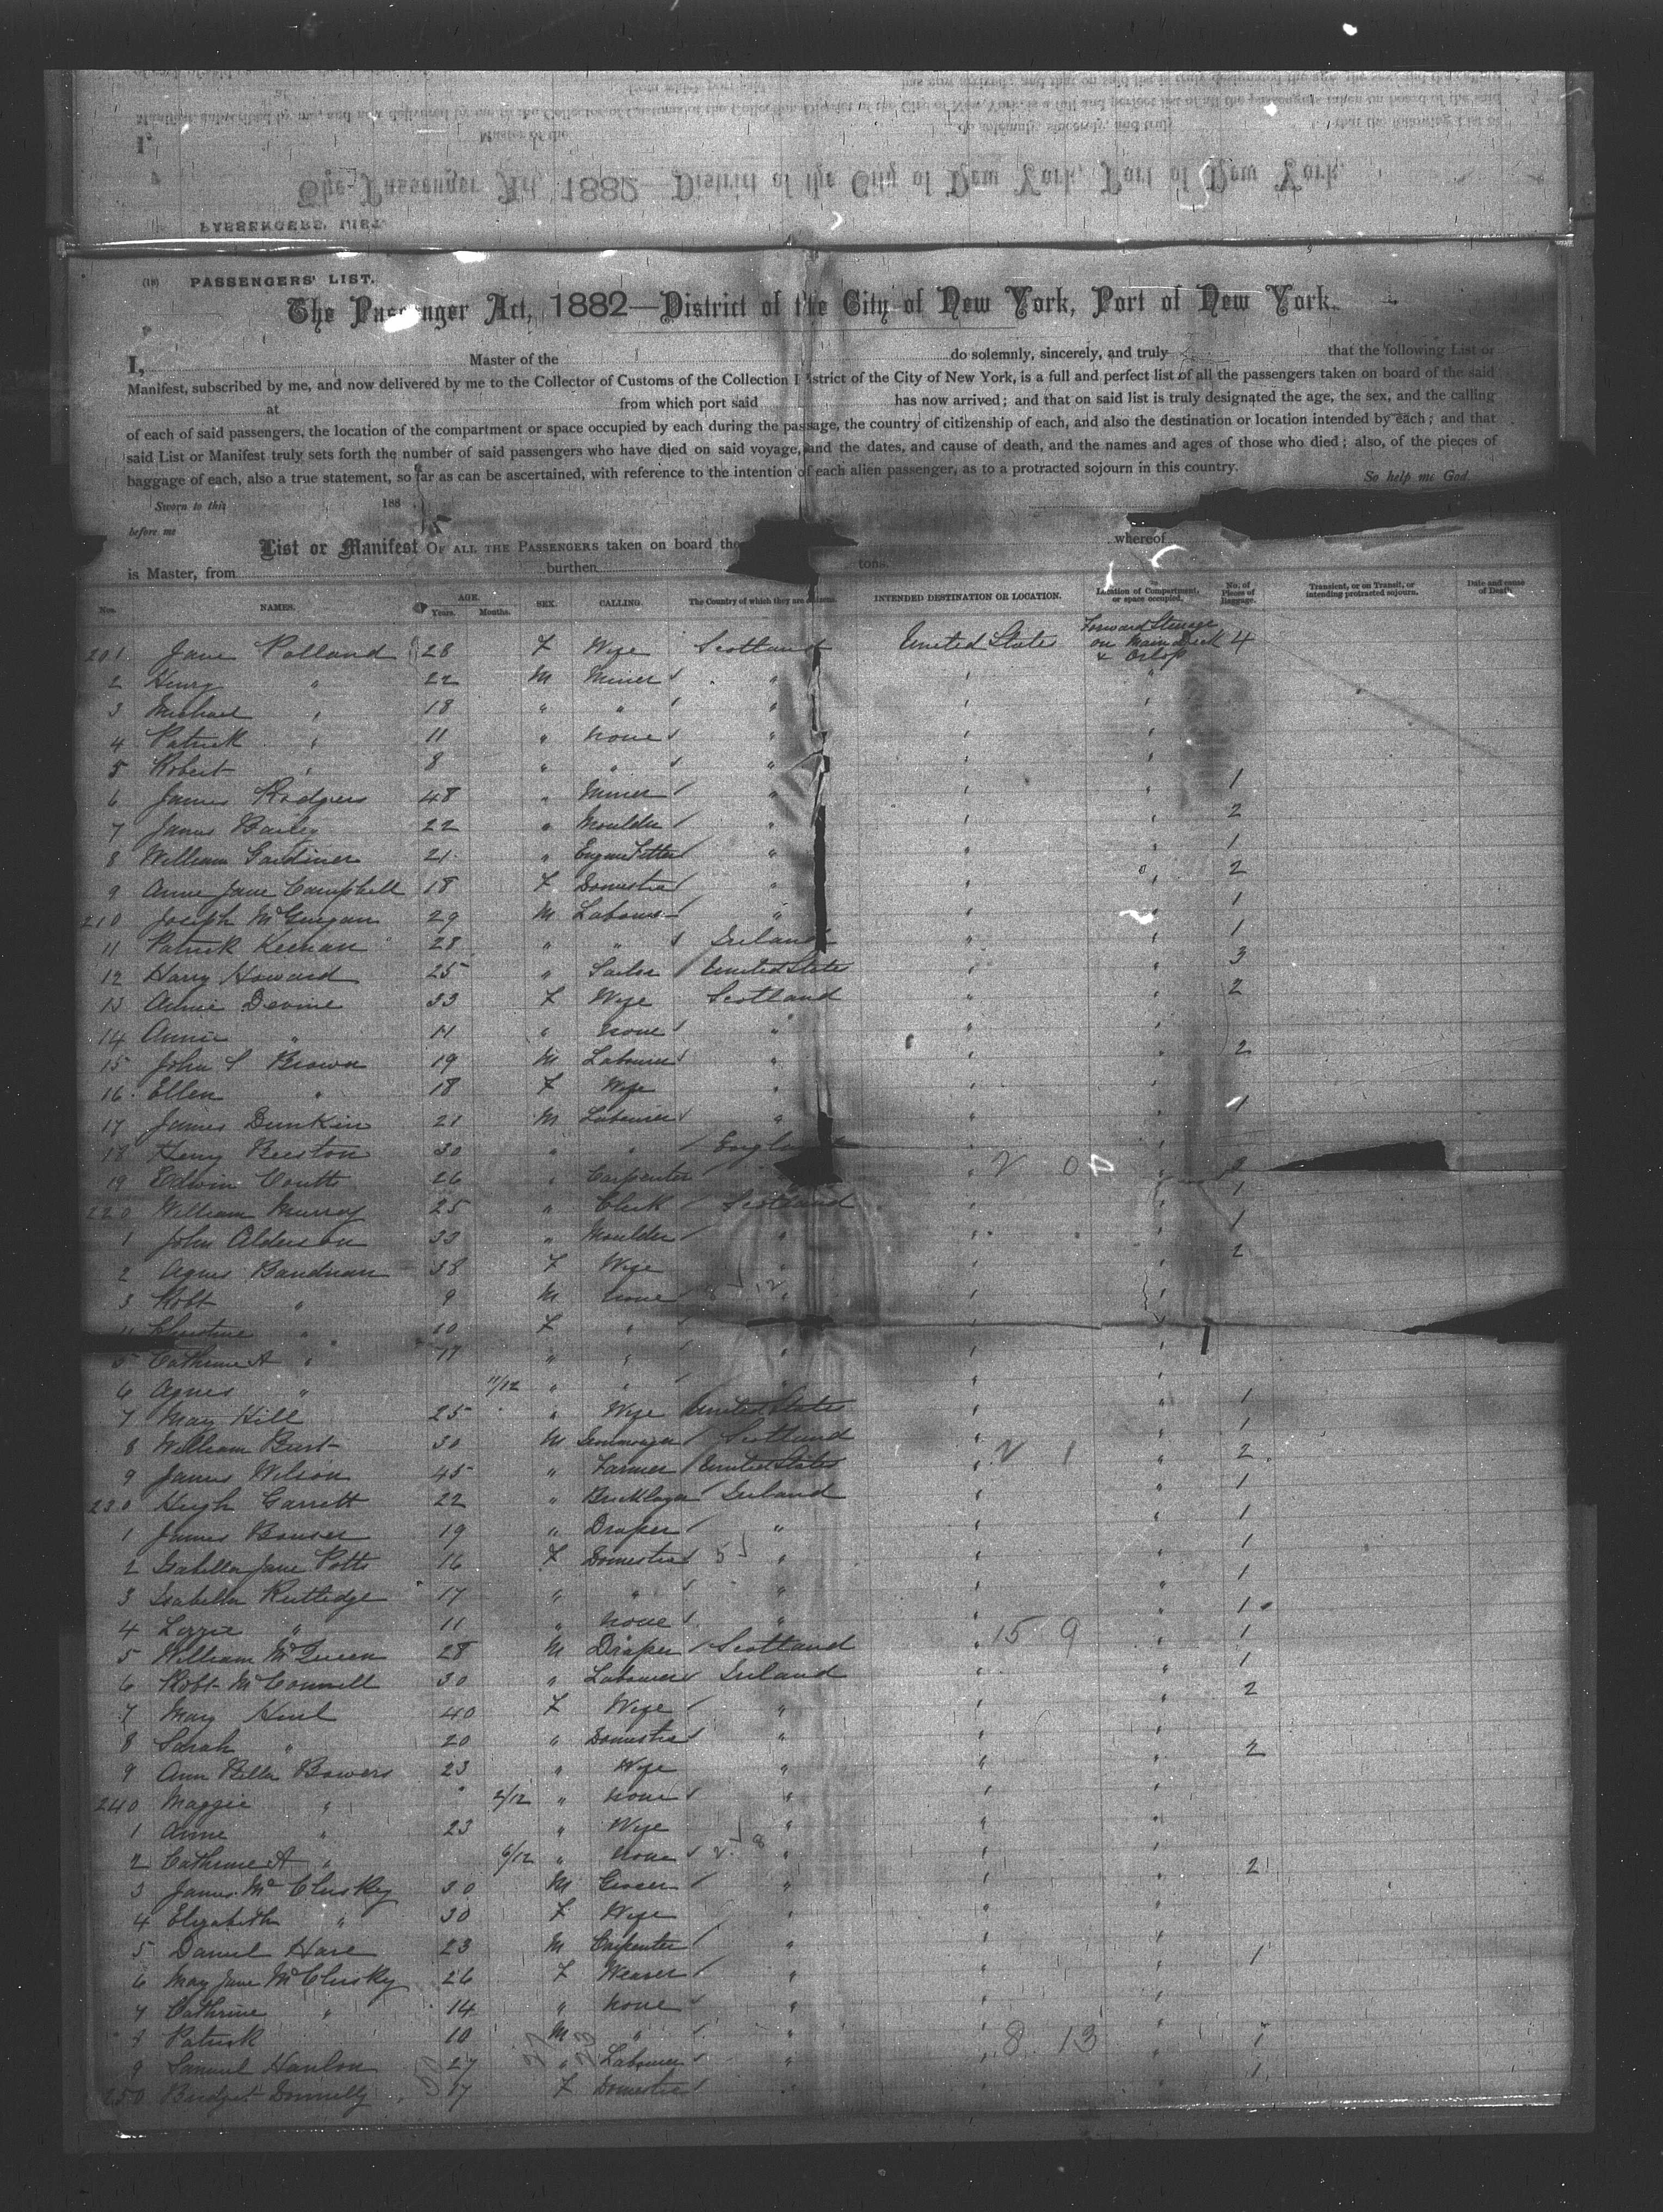 PASSENGERS' LIST.
The Passenger Act, 1882—District of the City of New York, Port of New York.
I, Master of the do solemnly, sincerely, and truly that the following List or
Manifest, subscribed by me, and now delivered by me to the Collector of Customs of the Collection District of the City of New York, is a full and perfect list of all the passengers taken on board of the said
at from which port said has now arrived; and that on said list is truly designated the age, the sex, and the calling
of each of said passengers, the location of the compartment or space occupied by each during the passage, the country of citizenship of each, and also the destination or location intended by each; and that
said List or Manifest truly sets forth the number of said passengers who have died on said voyage, and the dates, and cause of death, and the names and ages of those who died; also, of the pieces of
baggage of each, also a true statement, so far as can be ascertained, with reference to the intention of each alien passenger, as to a protracted sojourn in this country. So help me God.
Sworn to this 188
before me
List or Manifest OF ALL THE PASSENGERS taken on board the whereof
is Master, from burthen tons.
Nos. NAMES. AGE. Years. Months. SEX. CALLING. The Country of which they are citizens. INTENDED DESTINATION OR LOCATION. Location of Compartment, or space occupied. No. of Pieces of Baggage. Transient, or on Transit, or intending protracted sojourn. Date and cause of Death.
201 Jane Polland 28 F Wife Scotland United States Forward Steerage on Main Deck & Orlop 4
2 Henry " 22 M Miner " " "
3 Michael " 18 " " " " "
4 Patrick " 11 " None " " "
5 Robert " 8 " " " " "
6 James Rodgers 48 " Miner " " " 1
7 James Bailey 22 " Moulder " " " 2
8 William Gardiner 21 " Engine Fitter " " " 1
9 Anne Jane Campbell 18 F Domestic " " " 2
210 Joseph McGuigan 29 M Labourer " " " 1
11 Patrick Keenan 28 " " Ireland " " 1
12 Harry Howard 25 " Sailor United States " " 3
13 Annie Devine 33 F Wife Scotland " " 2
14 Annie " 11 " None " " "
15 John S Brown 19 M Labourer " " " 2
16 Ellen " 18 F Wife " " "
17 James Dunkin 21 M Labourer " " " 1
18 Henry Beeston 30 " " England " "
19 Edwin Coutts 26 " Carpenter " " 1
220 William Murray 25 " Clerk Scotland " " 1
1 John Alderson 33 " Moulder " " " 2
2 Agnes Bandman 38 F Wife " " "
3 Robt " 9 M None " " "
4 Christine " 10 F " " " "
5 Cathrine A " 17 " " " " "
6 Agnes " 11/12 " " " " "
7 Mary Hill 25 " Wife United States " " 1
8 William Burt 30 M Scotland " " 1
9 James Wilson 45 " Farmer United States " " 2
230 Hugh Garrett 22 " Bricklayer Ireland " " 1
1 James Bouser 19 " Draper " " " 1
2 Isabella Jane Potts 16 F Domestic " " " 1
3 Isabella Rutledge 17 " " " " " 1
4 Lizzie " 11 " None " " " 1
5 William McQueen 28 M Draper Scotland " " 1
6 Robt McConnell 30 " Labourer Ireland " " 1
7 Mary 40 F Wife " " " 2
8 Sarah " 20 " Domestic " " "
9 Ann Bella Bowers 23 " Wife " " " 2
240 Maggie " 2/12 " None " " "
1 Anne " 23 " Wife " " "
2 Cathrine A " 6/12 " None " " "
3 James McClusky 30 M Grocer " " " 2
4 Elizabeth " 30 F Wife " " "
5 Daniel Hare 23 M Carpenter " " "
6 Mary Jane McClusky 26 F Weaver " " " 1
7 Cathrine " 14 " None " " "
8 Patrick 10 M " " " "
9 Samuel Hanlon 27 " Labourer " " " 1
250 Bridget Donnelly 17 F Domestic " " " 1